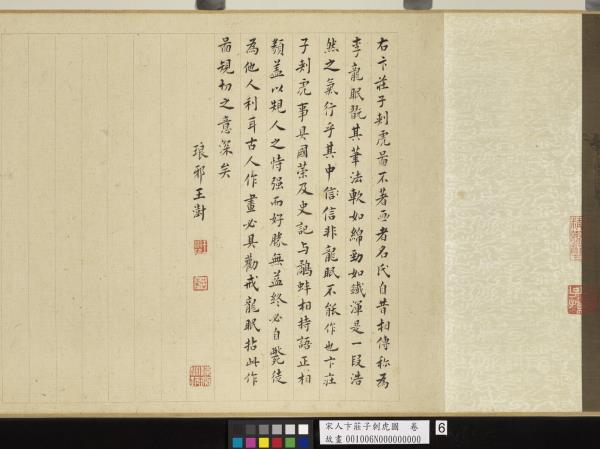 右卞莊子刺虎圖不著畫者名氏自昔相傳称為
李龍眠翫其筆法軟如綿勁如鐵渾是一段浩
然之氣行乎其中信信非龍眠不能作也卞莊
子刺虎事具國策及史記与鷸蚌相持語正相
類蓋以規人之恃强而好勝無益終必自斃徒
為他人利耳古人作畫必具勸戒龍眠拈此作
圖規切之意深矣
琅邪王澍
宋人卞莊子刺虎圖 卷
故畫 001006N000000000
6